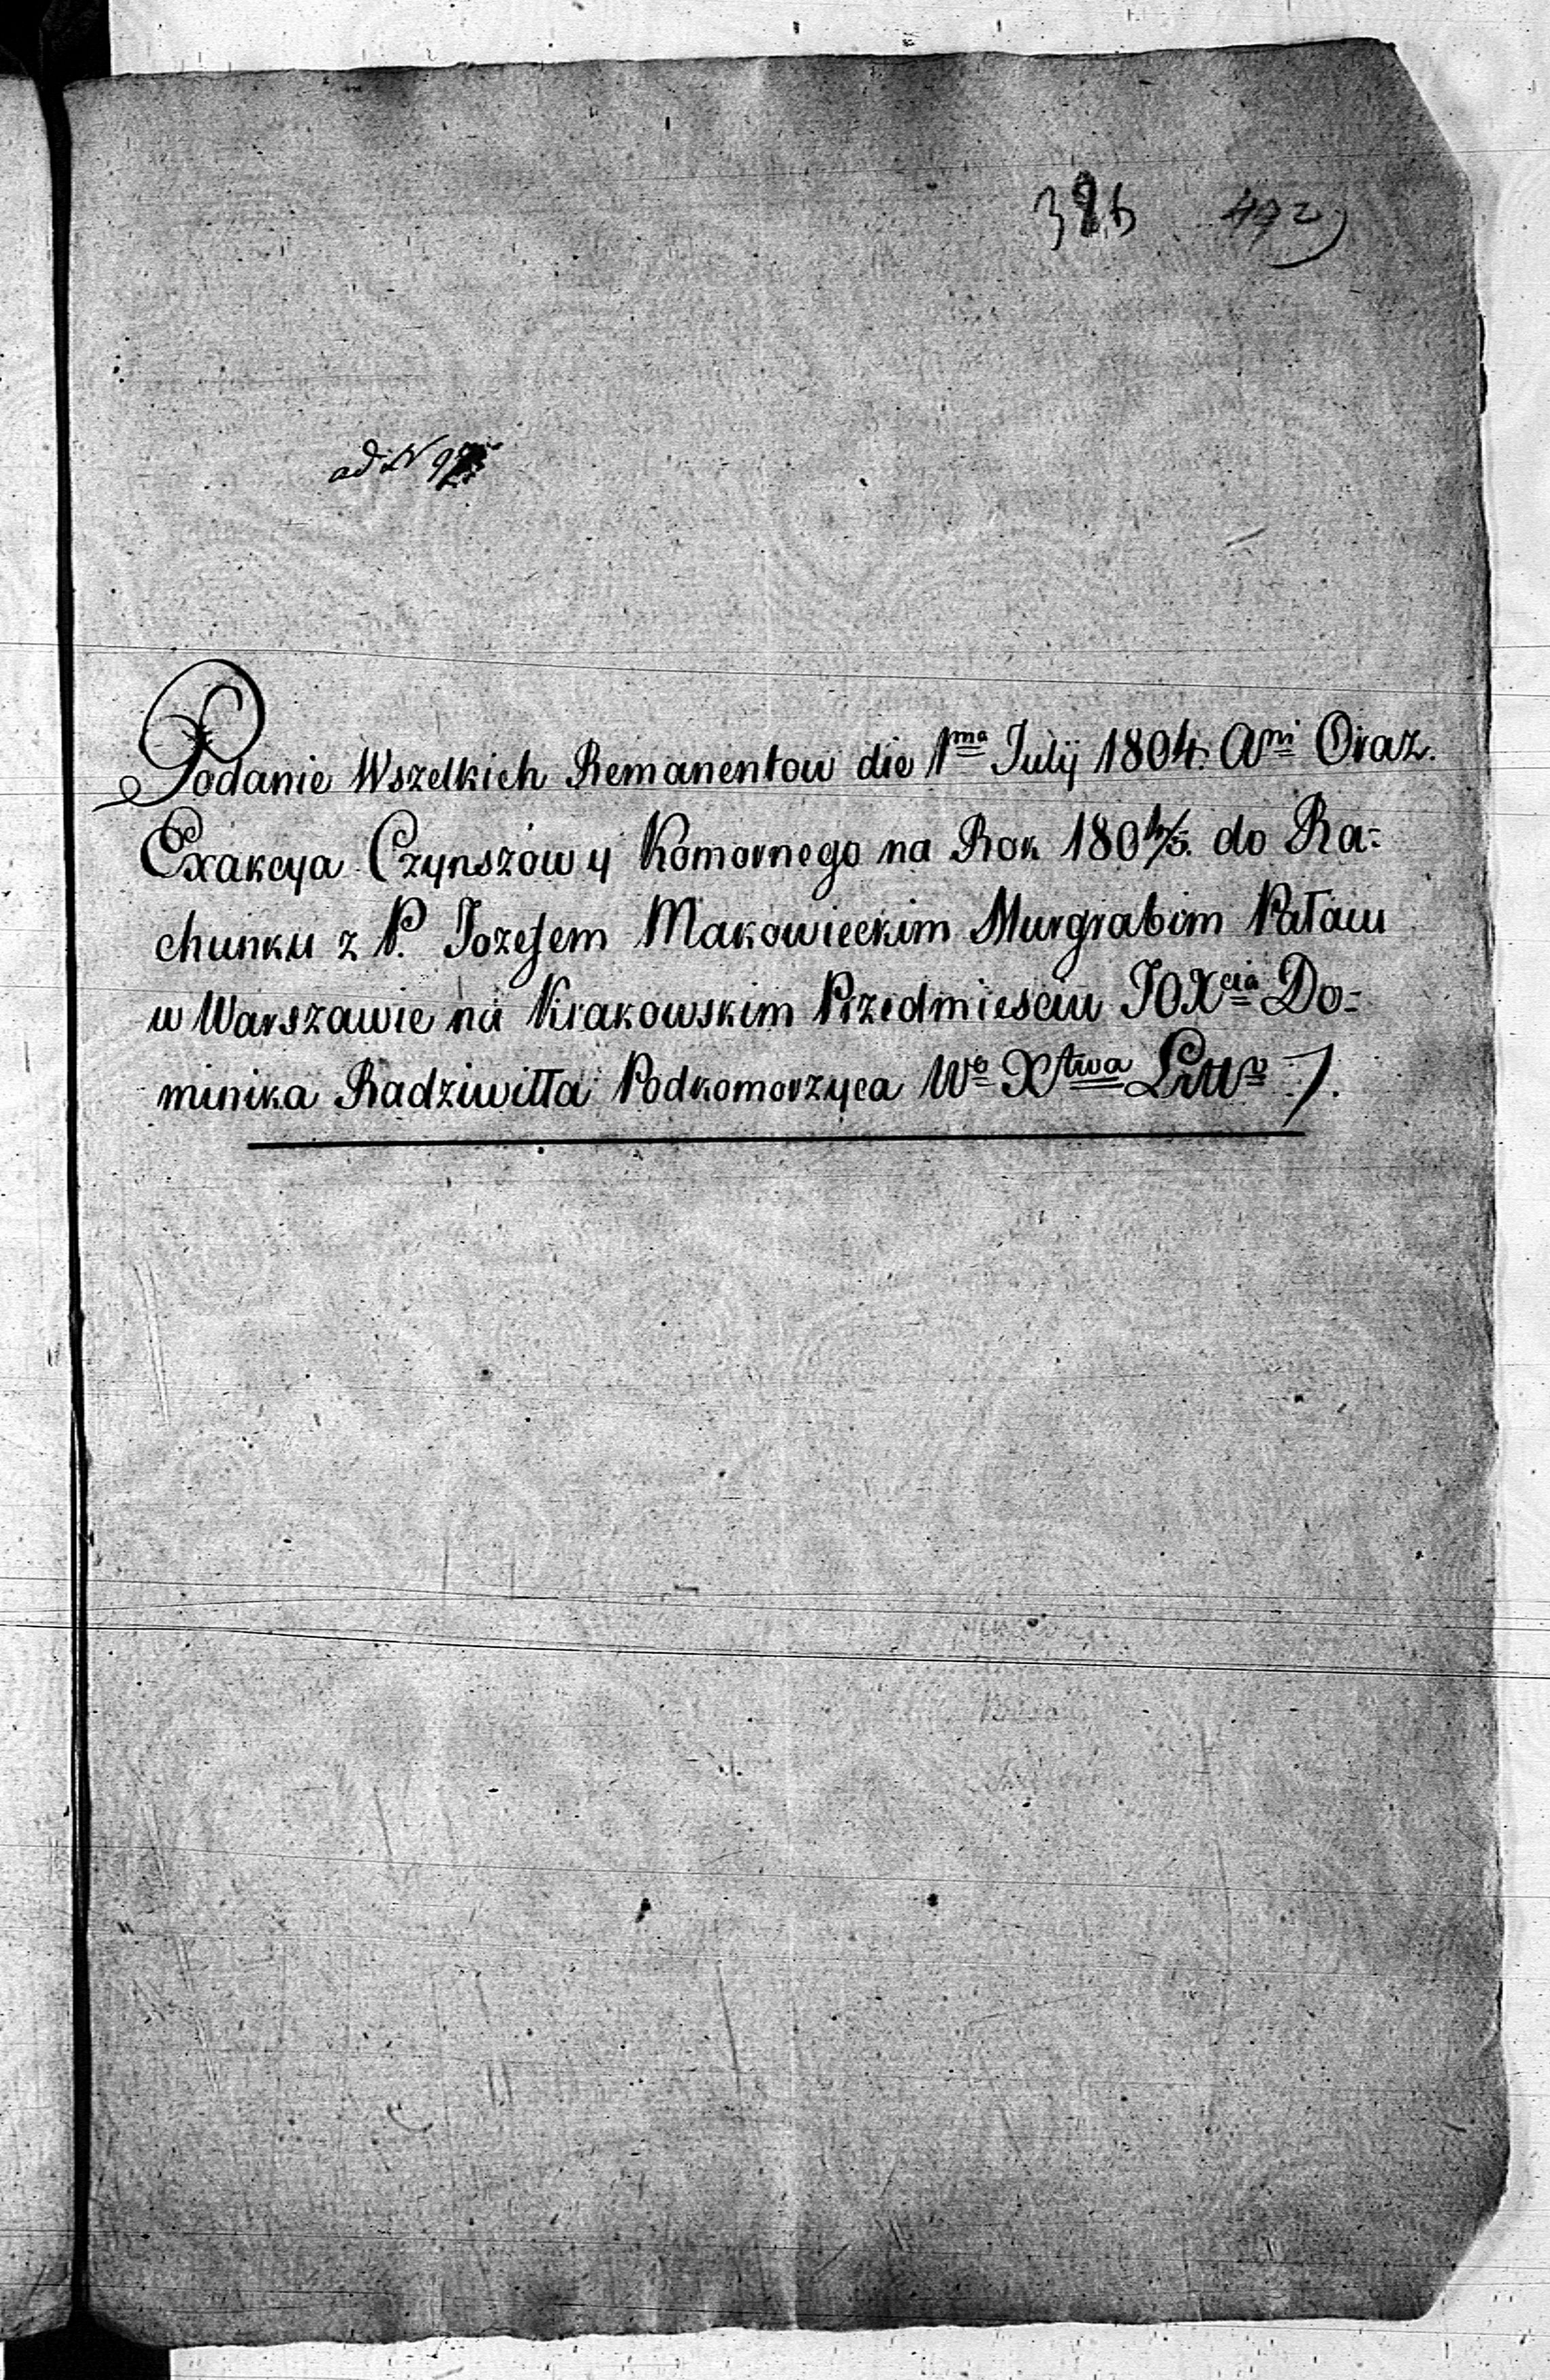 492
ad N 97
Podanie Wszelkich Remanentow die 1ma Julij 1804. Ani Oraz.
Exakcya Czynszow y Komornego na Rok 1804/5. do Ra=
chunku z P. Jozefem Makowieckim Murgrabim Pałacu
w Warszawie na Krakowskim Przedmiesciu JOXcia Do=
minika Radziwiłła Podkomorzyca Wo Xtwa Litto